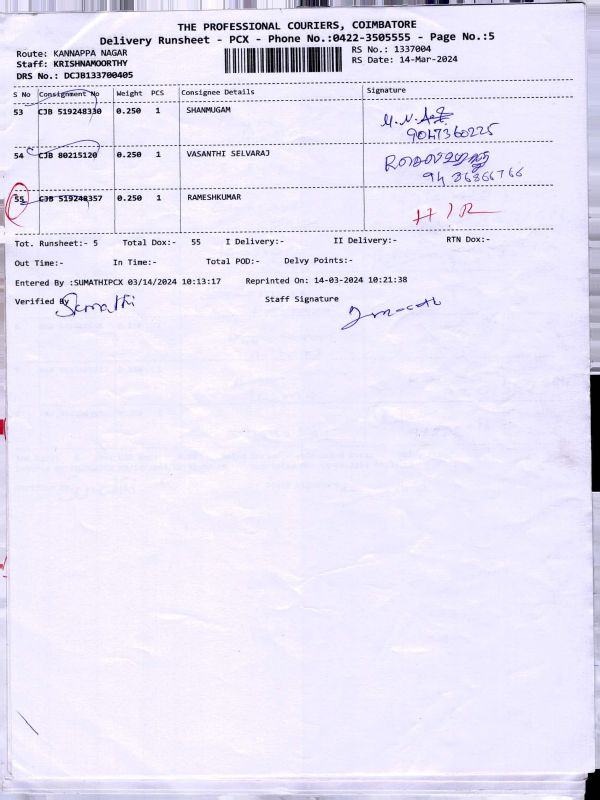 THE PROFESSIONAL COURIERS, COIMBATORE
Delivery Runsheet - PCX - Phone No.:0422-3505555 - Page No.:5
Route: KANNAPPA NAGAR RS No.: 1337004
Staff: KRISHNAMOORTHY RS Date: 14-Mar-2024
DRS No.: DCJB133700405
S No Consignment No Weight PCS Consignee Details Signature
53 CJB 519248330 0.250 1 SHANMUGAM
9047360225
54 CJB 80215120 0.250 1 VASANTHI SELVARAJ
55 CJB 519248357 0.250 1 RAMESHKUMAR
Tot. Runsheet:- 5 Total Dox:- 55 I Delivery:- II Delivery:- RTN Dox:-
Out Time:- In Time:- Total POD:- Delvy Points:-
Entered By :SUMATHIPCX 03/14/2024 10:13:17 Reprinted On: 14-03-2024 10:21:38
Verified By Sumathi Staff Signature